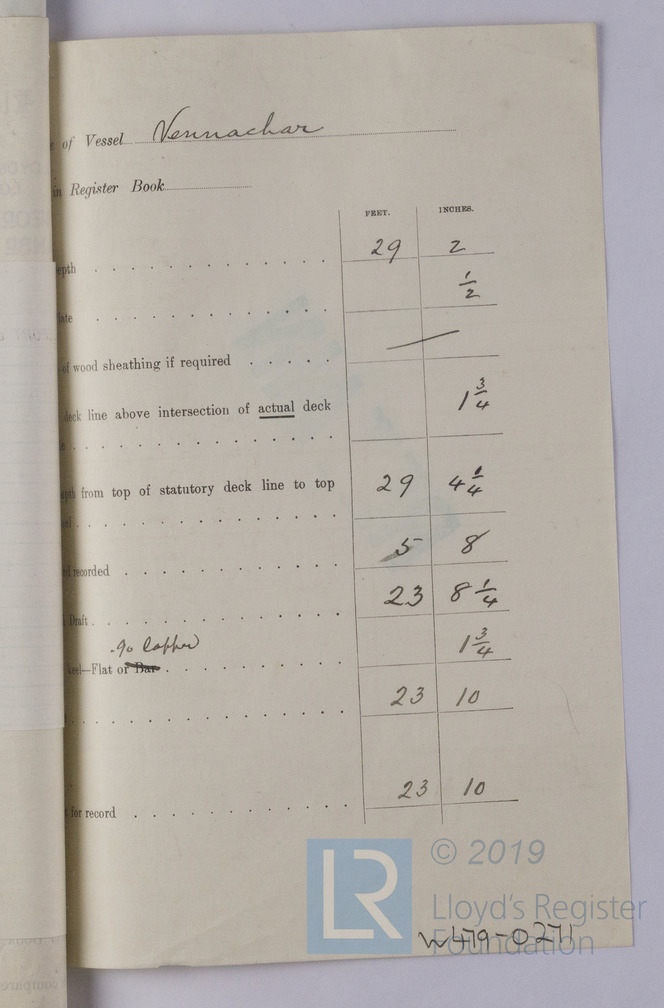 of Vessel Vennachar
in Register Book
FEET. INCHES.
29 2
1/2
of wood sheathing if required
deck line above intersection of actual deck 1 3/4
from top of statutory deck line to top 29 4 1/4
recorded 5 8
Draft 23 8 1/4
.90 Lapped
Keel—Flat or Bar 1 3/4
23 10
for record 23 10
LR © 2019
Lloyd's Register
Foundation
W479-0271